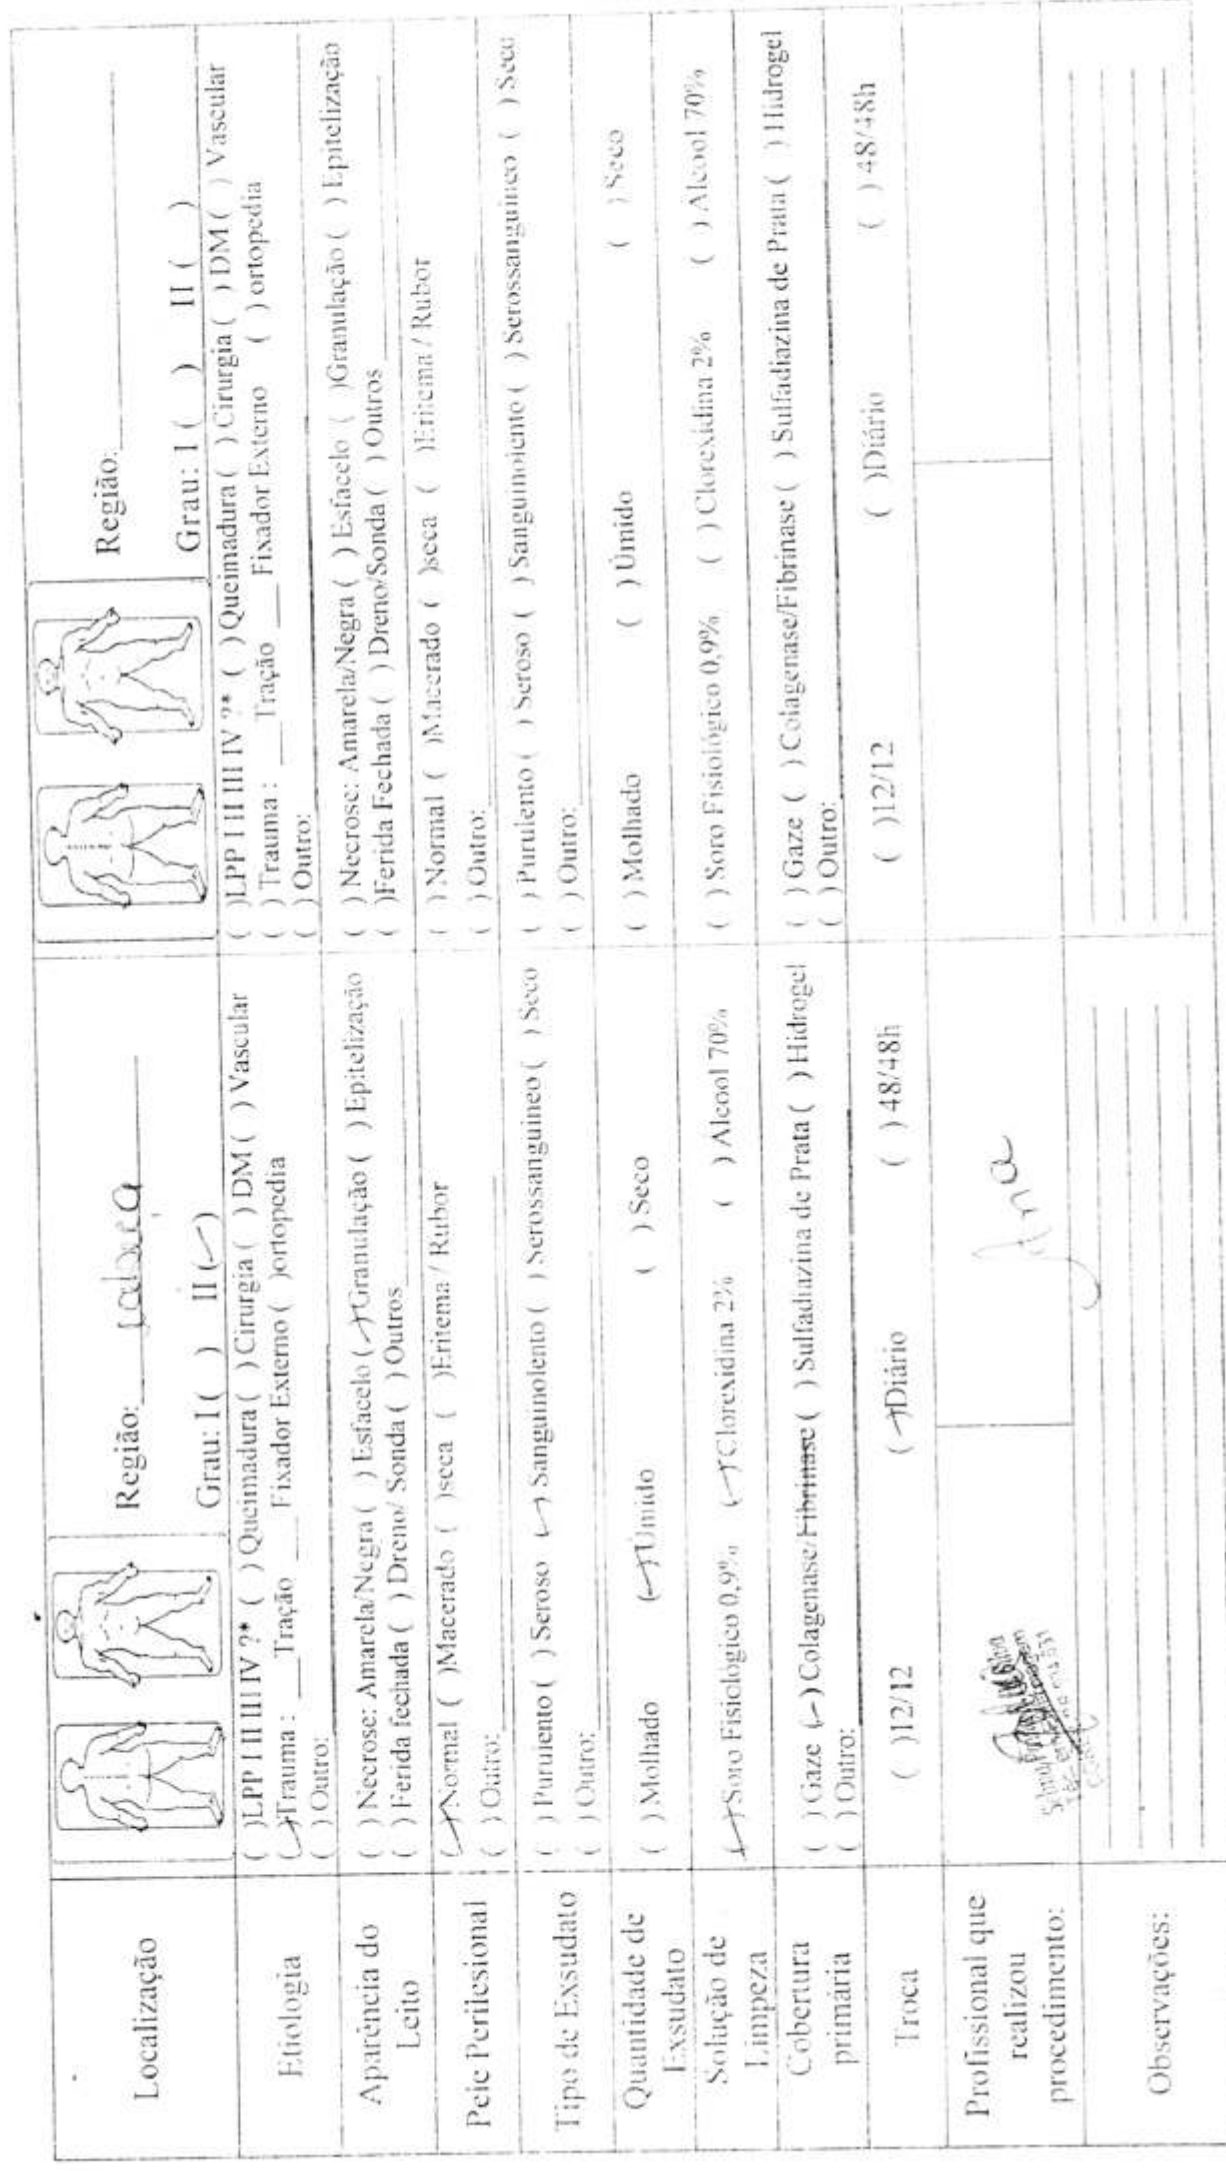 Localização
Região: cabeça
Grau: I ( ) II (✓)
Região:
Grau: I ( ) II ( )
Etiologia
( )LPP I II III IV ?* ( ) Queimadura ( ) Cirurgia ( ) DM ( ) Vascular
(✓)Trauma : ___Tração ___ Fixador Externo ( )ortopedia
( ) Outro:
( )LPP I II III IV ?* ( ) Queimadura ( ) Cirurgia ( ) DM ( ) Vascular
( ) Trauma : ___Tração ___ Fixador Externo ( ) ortopedia
( ) Outro:
Aparência do
Leito
( ) Necrose: Amarela/Negra ( ) Esfacelo (✓)Granulação ( ) Epitelização
( ) Ferida fechada ( ) Dreno/ Sonda ( ) Outros
( ) Necrose: Amarela/Negra ( ) Esfacelo ( )Granulação ( ) Epitelização
( )Ferida Fechada ( ) Dreno/Sonda ( ) Outros
Pele Perilesional
(✓)Normal ( )Macerado ( )seca ( )Eritema / Rubor
( ) Outro:
( ) Normal ( )Macerado ( )seca ( )Eritema / Rubor
( ) Outro:
Tipo de Exsudato
( ) Purulento ( ) Seroso (✓) Sanguinolento ( ) Serossanguineo ( ) Seco
( ) Outro:
( ) Purulento ( ) Seroso ( ) Sanguinolento ( ) Serossanguineo ( ) Seco
( ) Outro:
Quantidade de
Exsudato
( ) Molhado (✓)Úmido ( ) Seco
( ) Molhado ( ) Úmido ( ) Seco
Solução de
Limpeza
(✓)Soro Fisiológico 0,9% (✓)Clorexidina 2% ( ) Alcool 70%
( ) Soro Fisiológico 0,9% ( ) Clorexidina 2% ( ) Alcool 70%
Cobertura
primária
( ) Gaze (✓) Colagenase/Fibrinase ( ) Sulfadiazina de Prata ( ) Hidrogel
( ) Outro:
( ) Gaze ( ) Colagenase/Fibrinase ( ) Sulfadiazina de Prata ( ) Hidrogel
( ) Outro:
Troca
( ) 12/12 (✓)Diário ( ) 48/48h
( )12/12 ( )Diário ( ) 48/48h
Profissional que
realizou
procedimento:
Ana
Observações: